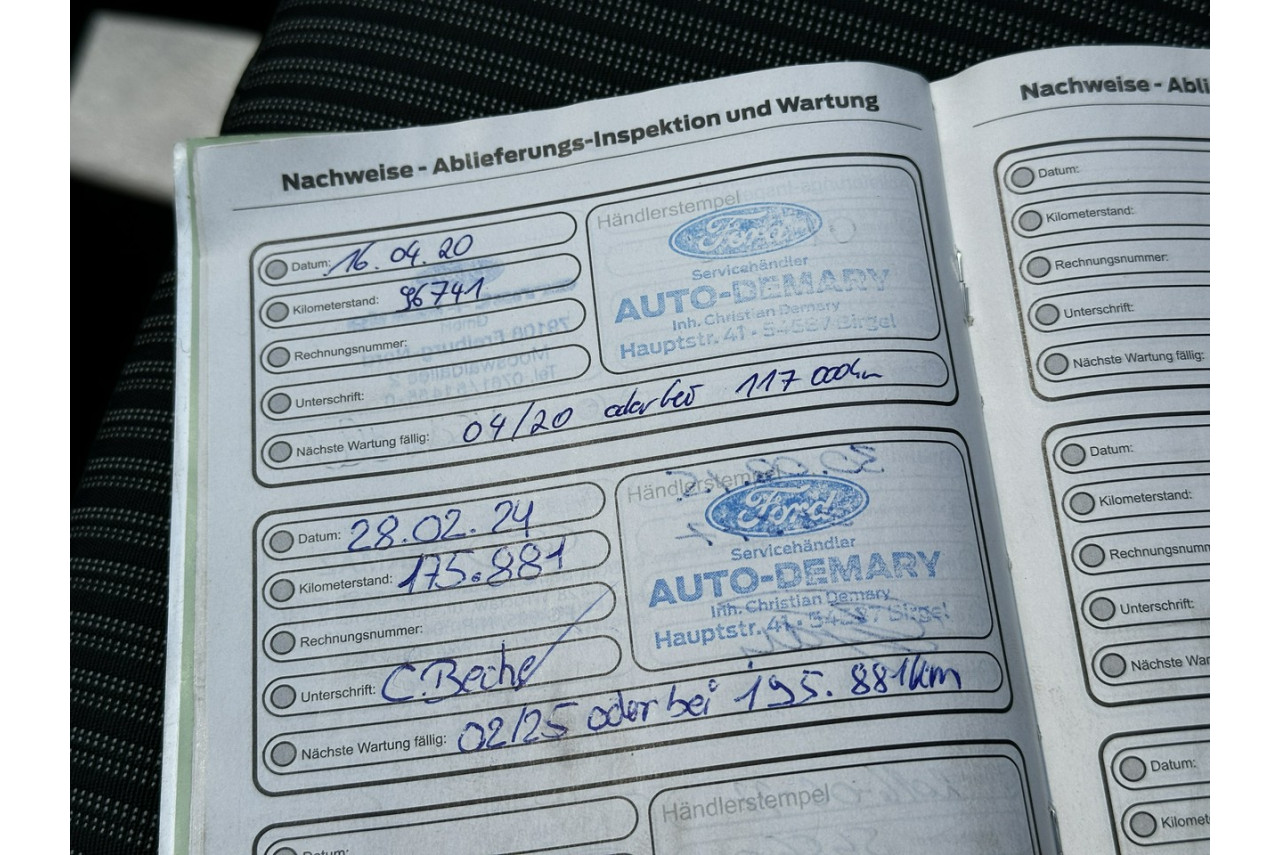 Nachweise - Ablieferungs-Inspektion und Wartung
Datum: 16.04.20
Kilometerstand: 96741
Rechnungsnummer:
Unterschrift:
Nächste Wartung fällig: 04/20 oder bei 117 000km
Händlerstempel
Ford
Servicehändler
AUTO-DEMARY
Inh. Christian Demary
Hauptstr. 41 - 54587 Birgel
Datum: 28.02.24
Kilometerstand: 175.881
Rechnungsnummer:
Unterschrift: C.
Nächste Wartung fällig: 02/25 oder bei 195.881km
Händlerstempel
Ford
Servicehändler
AUTO-DEMARY
Inh. Christian Demary
Hauptstr. 41 - 54587 Birgel
Datum:
Händlerstempel
Nachweise - Abli
Datum:
Kilometerstand:
Rechnungsnummer:
Unterschrift:
Nächste Wartung fällig:
Datum:
Kilometerstand:
Rechnungsnumm
Unterschrift:
Nächste War
Datum:
Kilomet